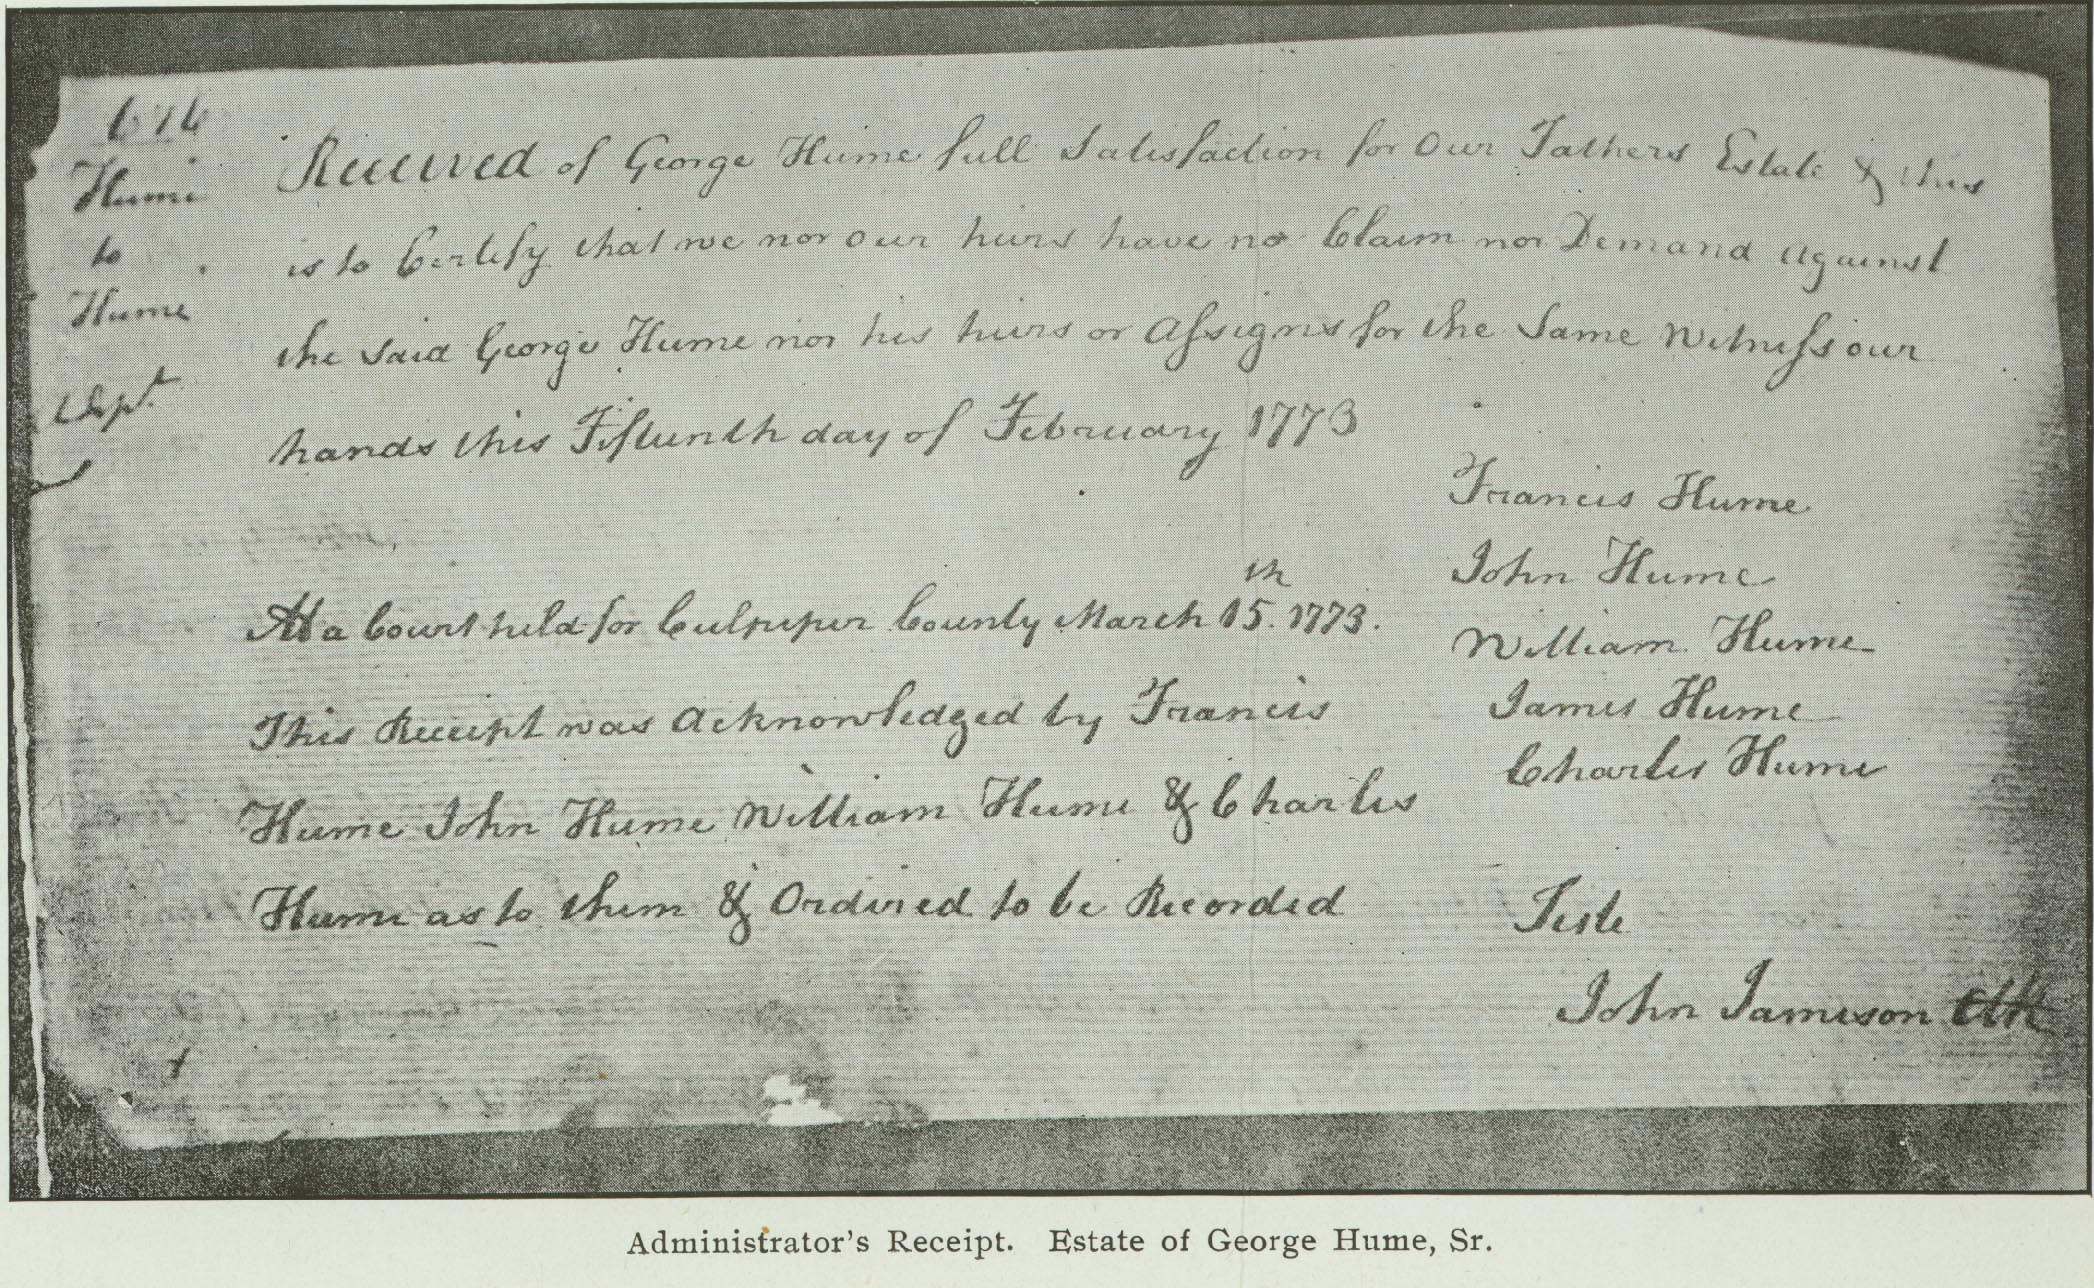 676
Hume
to
Hume
Rcpt
Received of George Hume full Satisfaction for Our Fathers Estate & this
is to Certify that we nor our heirs have no Claim nor Demand against
the Said George Hume nor his heirs or Assigns for the Same Witness our
hands this Fifteenth day of February 1773
Francis Hume
John Hume
William Hume
James Hume
Charles Hume
At a Court held for Culpeper County March 15th 1773.
This Receipt was Acknowledged by Francis
Hume John Hume William Hume & Charles
Hume as to them & Ordered to be Recorded
Teste
John Jameson
Administrator's Receipt. Estate of George Hume, Sr.